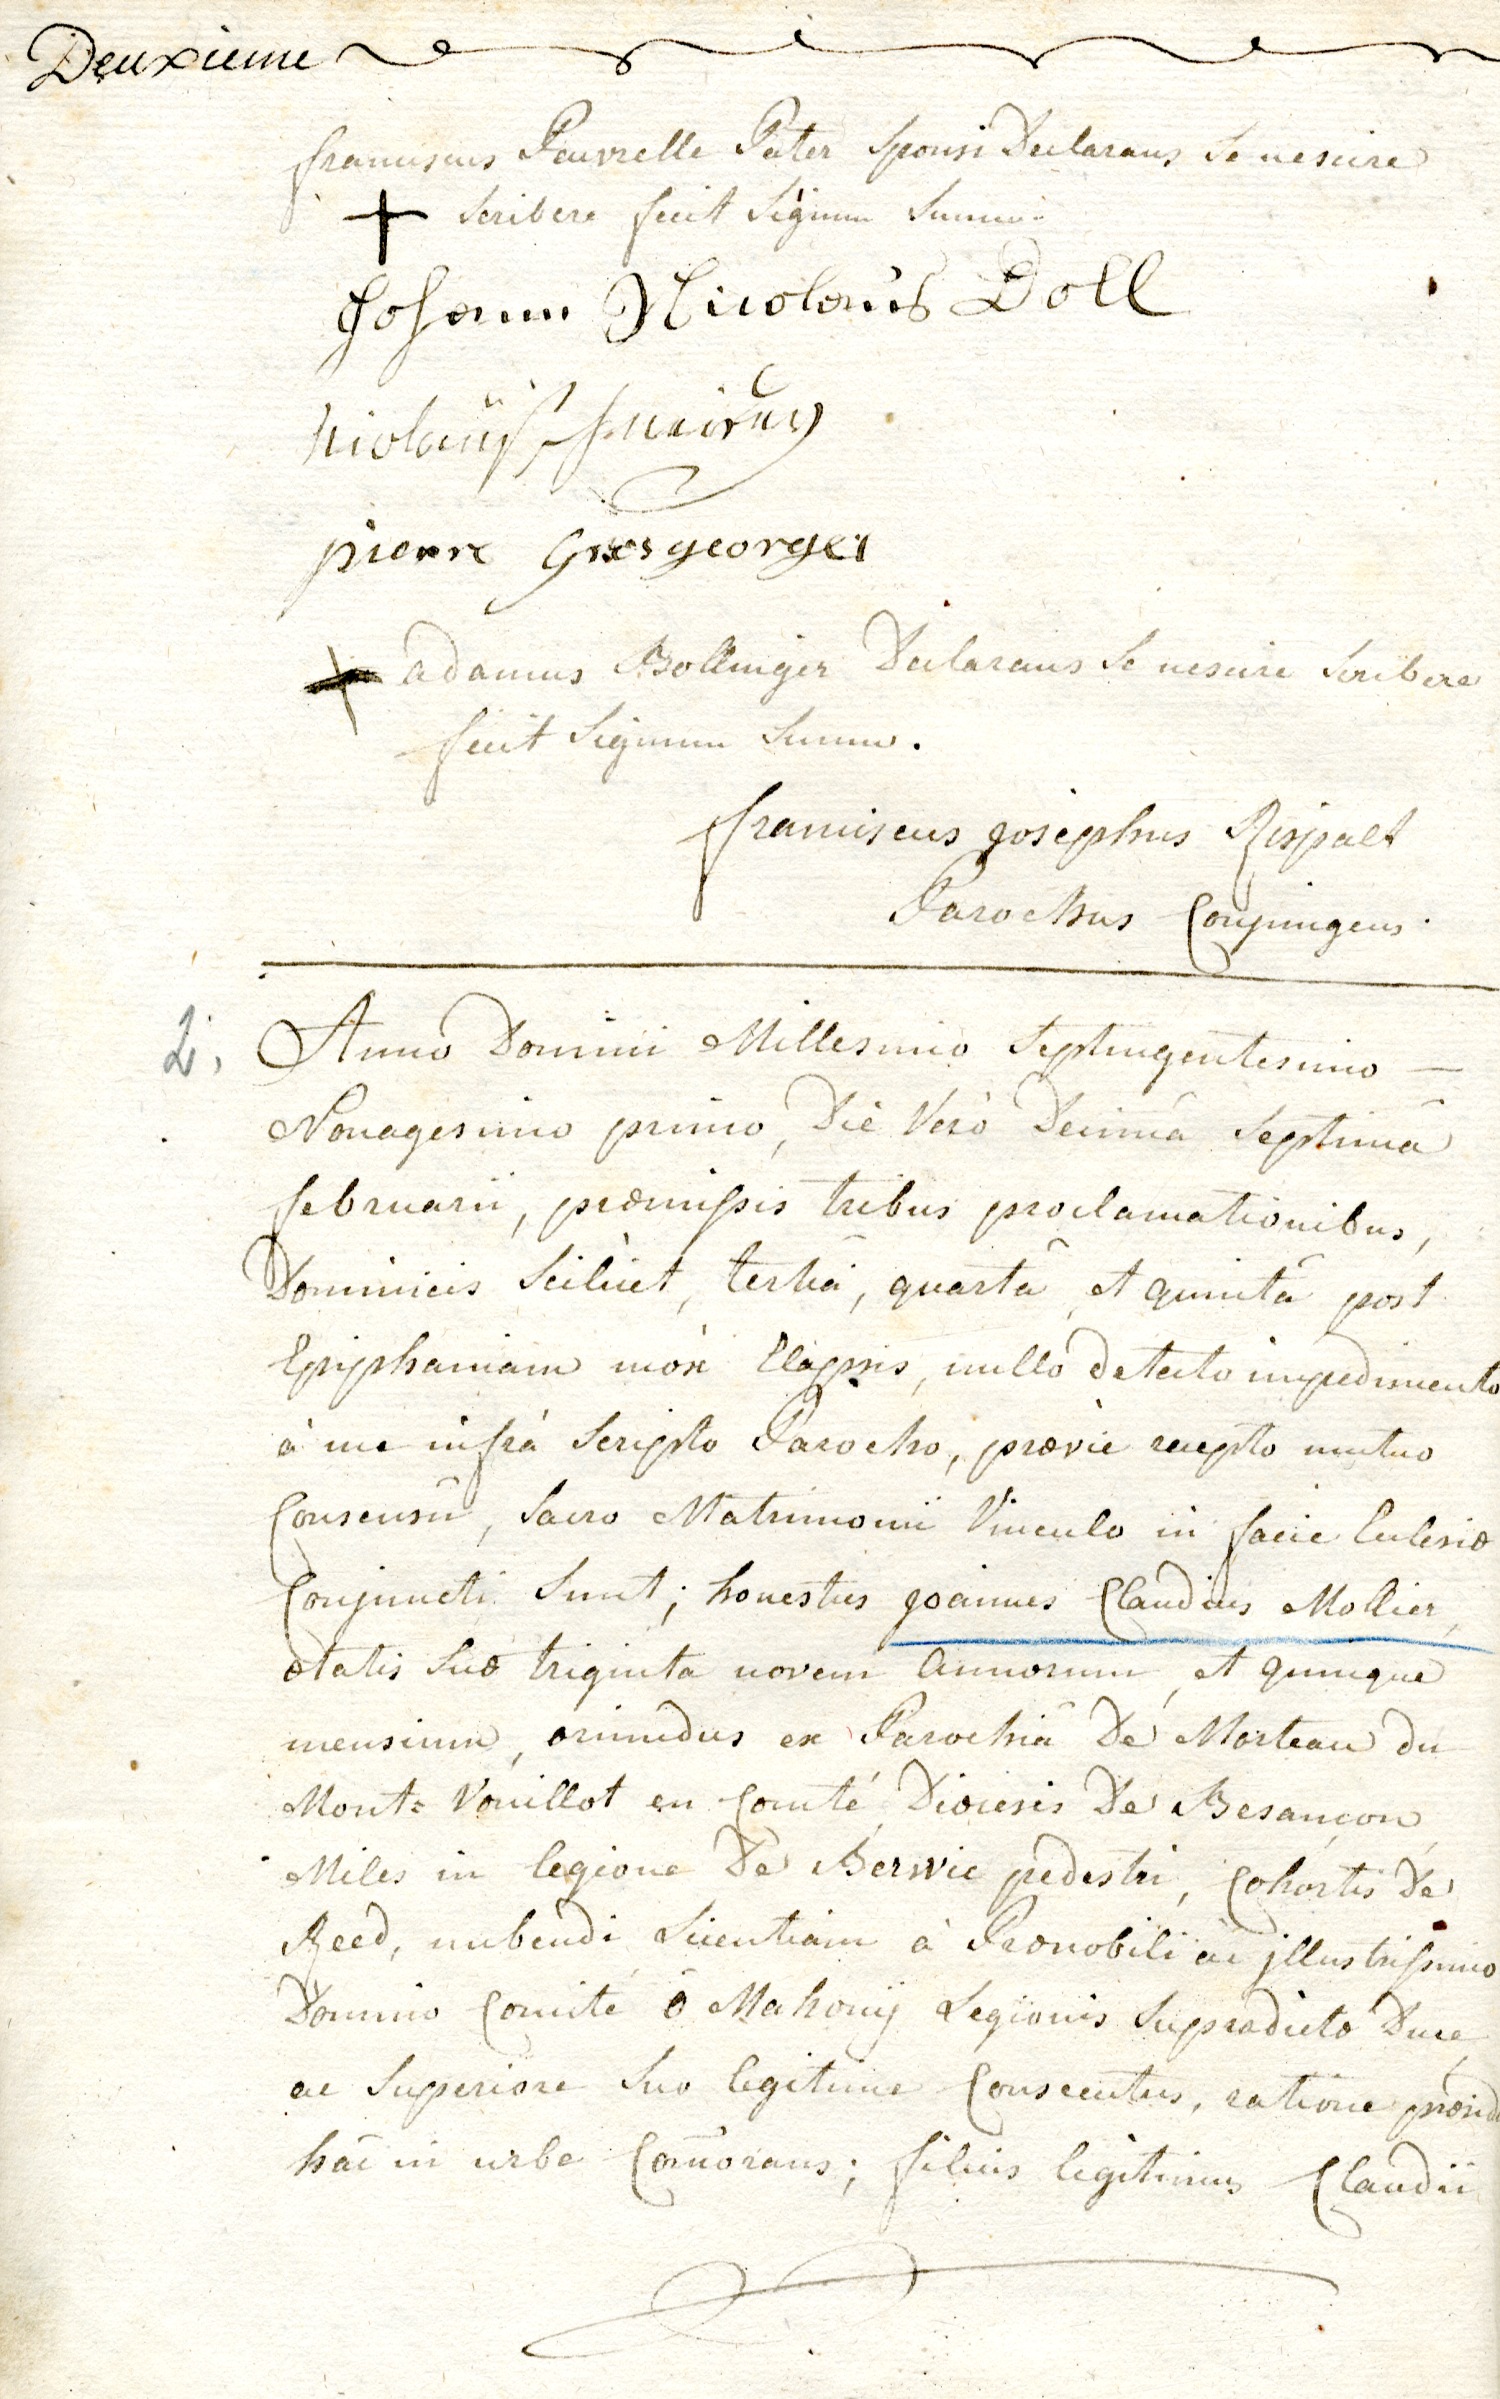 Deuxieme
franciscus Pauvrelle Pater Sponsi Declarans Se nescire
+ Scribere fecit Signum Suum.
Johann Nicolaus Doll
nicolaus
pierre Grosgeorges
+ adamus Bollinger Declarans Se nescire Scribere
fecit Signum Suum.
franciscus josephus Rispalt
Parochus Conjungens.
2. Anno Domini Millesimo Septingentesimo —
Nonagesimo primo, Die Verò Decimâ Septimâ
februarii, præmissis tribus proclamationibus,
Dominicis Scilicet, tertiâ, quartâ, et quintâ post
Epiphaniam mox Elapsis, nullo detecto impedimento
à me infrà Scripto Parocho, prævie recepto mutuo
Consensu, Sacro Matrimonii Vinculo in facie Eclesiæ
Conjuncti Sunt; honestus joannes Claudius Mollier,
ætatis Suæ triginta novem annorum, et quinque
mensium, oriundus ex Parochiâ De Morteau du
Mont= Vouillot en Comté, Diocesis De Besançon,
Miles in legione De Berwic pedestri, Cohortis De
Reed, nubendi licentiam à Prænobili ac jllustrissimo
Domino Comite ô Mahonÿ Legionis Supradictæ Duce,
ac Superiore Suo legitime Consecutus, ratione præsid
hâc in urbe Com̃orans; filius legitimus Claudii